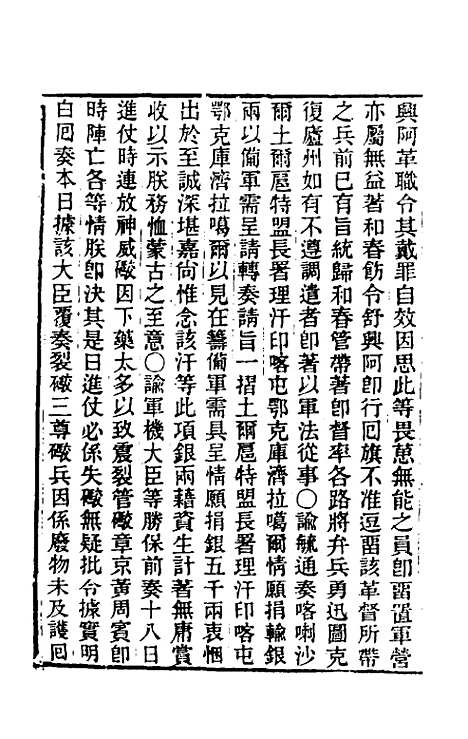 興阿革職令其戴罪自效因思此等畏葸無能之員卽畱置軍營
亦屬無益著和春飭令舒興阿卽行回旗不准逗畱該革督所帶
之兵前已有旨統歸和春管帶著卽督率各路將弁兵勇迅圖克
復廬州如有不遵調遣者卽著以軍法從事〇諭毓通奏喀喇沙
爾土爾扈特盟長署理汗印喀屯鄂克庫濟拉噶爾情願捐輸銀
兩以備軍需呈請轉奏請旨一摺土爾扈特盟長署理汗印喀屯
鄂克庫濟拉噶爾以見在籌備軍需具呈情願捐銀五千兩衷悃
出於至誠深堪嘉尚惟念該汗等此項銀兩藉資生計著無庸賞
收以示朕務恤蒙古之至意〇諭軍機大臣等勝保前奏十八日
進仗時連放神威礮因下藥太多以致震裂管礮章京黃周賓卽
時陣亡各等情朕卽決其是日進仗必係失礮無疑批令據實明
白回奏本日據該大臣覆奏裂礮三尊礮兵因係廢物未及護回